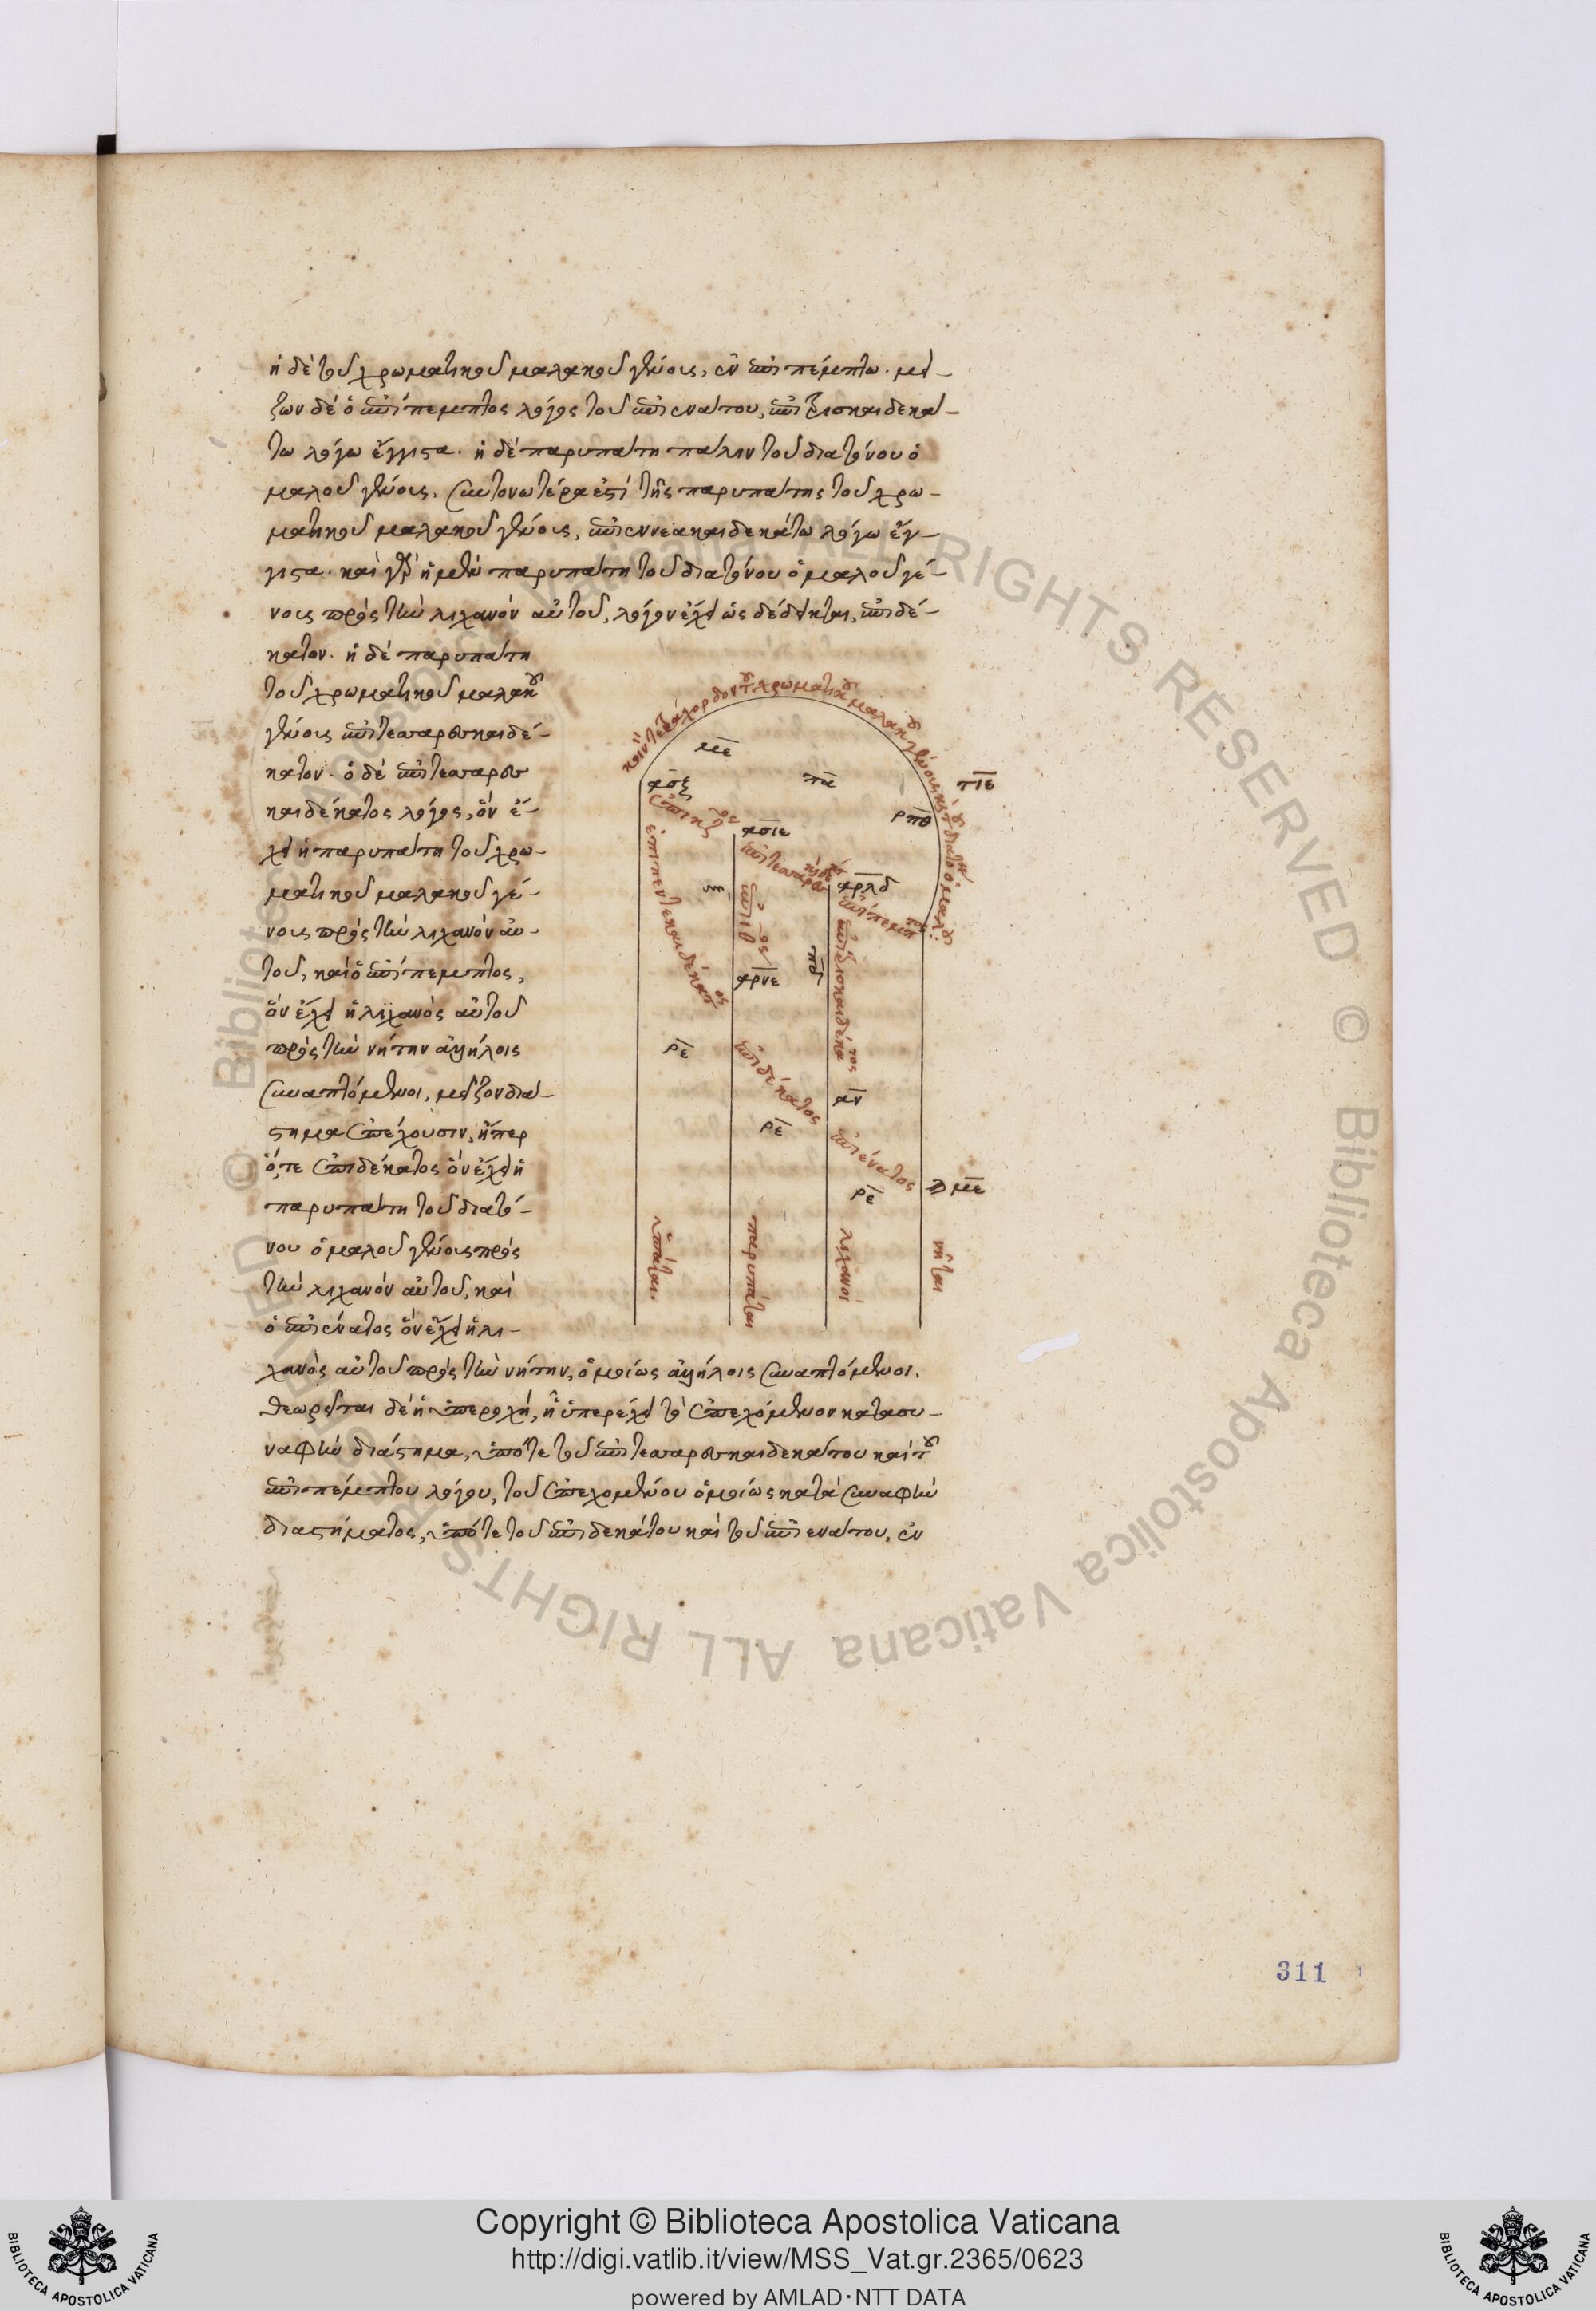 ἡ δὲ τοῦ χρωματικοῦ μαλακοῦ γένους, ἐν ἐπιπέμπτω. μεί-
ζων δὲ ὁ ἐπίπεμπτος λόγος τοῦ ἐπιενάτου, ἐπὶ
τω λόγω ἔγγιστα. ἡ δὲ παρυπάτη πάλιν τοῦ διατόνου ὁ
μαλοῦ γένους, συντονωτέρα ἐστὶ τῆς παρυπάτης τοῦ χρω-
ματικοῦ μαλακοῦ γένους, ἐπιεννεακαιδεκάτω λόγω ἔγ-
γιστα. καὶ γὰρ ἡ μὲν παρυπάτη τοῦ διατόνου ὁμαλοῦ γέ-
νους πρὸς τὴν λιχανὸν αὐτοῦ, λόγον ἔχει ὡς δέδεικται, ἐπιδέ-
κατον. ἡ δὲ παρυπάτη
τοῦ χρωματικοῦ μαλακοῦ
γένους ἐπιτεσσαρεσκαιδέ-
κατον. ὁ δὲ ἐπιτεσσαρεσ
καιδέκατος λόγος, ὃν ἔ-
χει ἡ παρυπάτη τοῦ χρω-
ματικοῦ μαλακοῦ γέ-
νους πρὸς τὴν λιχανὸν αὐ-
τοῦ, καὶ ὁ ἐπίπεμπτος,
ὃν ἔχει ἡ λιχανὸς αὐτοῦ
πρὸς τὴν νήτην ἀλλήλοις
συναπτόμενοι, μεῖζον διά-
στημα ἀπέχουσιν, ἤπερ
ὅ,τε ἐπιδέκατος ὃν ἔχει ἡ
παρυπάτη τοῦ διατό-
νου ὁμαλοῦ γένους πρὸς
τὴν λιχανὸν αὐτοῦ, καὶ
ὁ ἐπιένατος ὃν ἔχει ἡ λι-
χανὸς αὐτοῦ πρὸς τὴν νήτην, ὁμοίως ἀλλήλοις συναπτόμενοι.
θεωρεῖται δὲ ἡ ὑπεροχή, ἣ ὑπερέχει τὸ ἀπεχόμενον κατασυ-
ναφὴν διάστημα, ὑπότε τοῦ ἐπιτεσσαρεσκαιδεκάτου καὶ τοῦ
ἐπιπέμπτου λόγου, τοῦ ἀπεχομένου ὁμοίως κατὰ συναφὴν
διαστήματος, ὑπότε τοῦ ἐπιδεκάτου καὶ τοῦ ἐπιενάτου, ἐν
κοινὸν τετράχορδον τοῦ χρωματικοῦ μαλακοῦ γένους καὶ τοῦ διατόνου ὁμαλοῦ
με
ασξ
πα
τιε
ρπθ
ασιε
ἐπιπεντεκαιδέκατος
ἐπιτεσσαρεσκαιδέκατος
αρλδ
ἐπίπεμπτος
αρνε
ρε
ἐπιδέκατος
ρε
αν
ἐπιένατος
ρε
ϡμε
ὑπάται
παρυπάται
λιχανοί
νῆται
311
Copyright © Biblioteca Apostolica Vaticana
http://digi.vatlib.it/view/MSS_Vat.gr.2365/0623
powered by AMLAD·NTT DATA
BIBLIOTECA APOSTOLICA VATICANA
BIBLIOTECA APOSTOLICA VATICANA